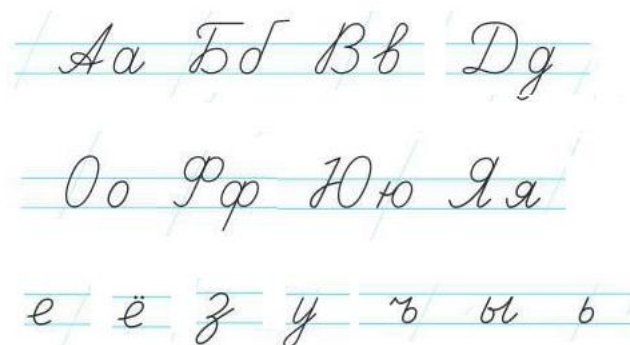 Аа Бб Вв Дд
Оо Фф Юю Яя
е ё з у ъ ы ь